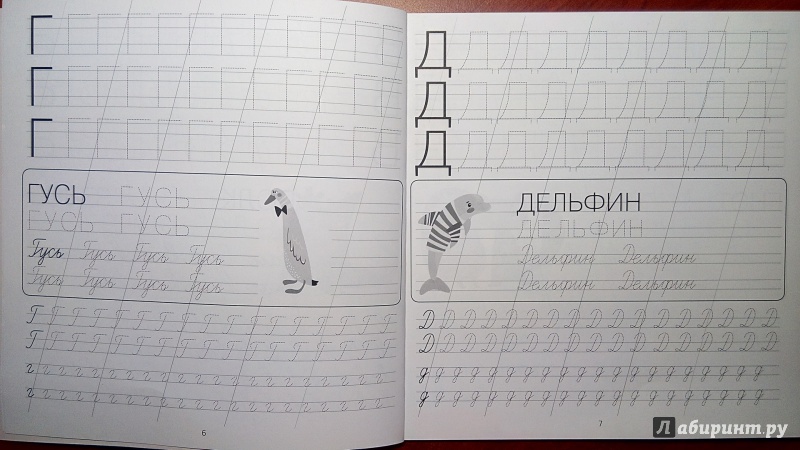 Г Г Г Г Г Г Г Г Г Г Г
Г Г Г Г Г Г Г Г Г Г Г
Г Г Г Г Г Г Г Г Г Г Г
ГУСЬ ГУСЬ
ГУСЬ ГУСЬ
Гусь Гусь Гусь Гусь
Гусь Гусь Гусь Гусь
Г Г Г Г Г Г Г Г Г Г Г Г Г Г Г Г Г
Г Г Г Г Г Г Г Г Г Г Г Г Г Г Г Г Г
г г г г г г г г г г г г г г г г г
г г г г г г г г г г г г г г г г г
6
Д Д Д Д Д Д Д Д Д
Д Д Д Д Д Д Д Д Д
Д Д Д Д Д Д Д Д Д
ДЕЛЬФИН
ДЕЛЬФИН
Дельфин Дельфин
Дельфин Дельфин
Д Д Д Д Д Д Д Д Д Д Д Д Д Д Д Д Д
Д Д Д Д Д Д Д Д Д Д Д Д Д Д Д Д Д
д д д д д д д д д д д д д д д д д д д
д д д д д д д д д д д д д д д д д д д
7
Лабиринт.ру